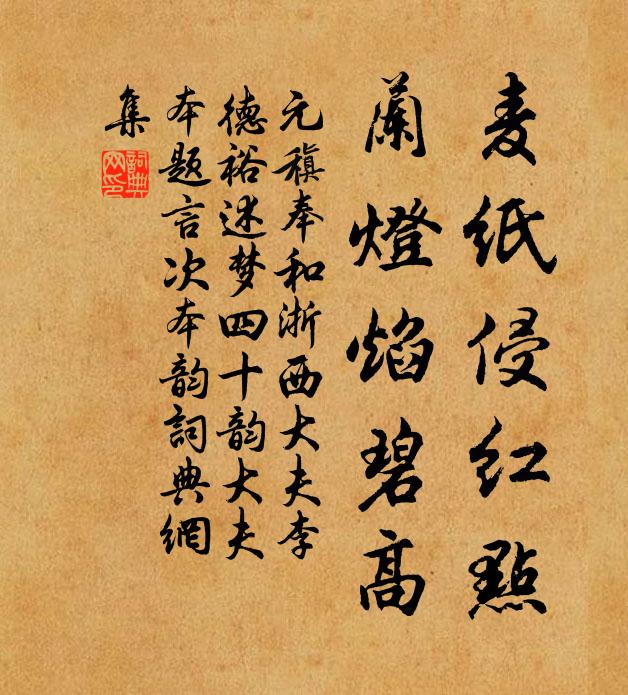 麦纸侵红點
蘭燈焰碧高
元稹奉和浙西大夫李
德裕述梦四十韵大夫
本题言次本韵詞典網
集
詞典網印